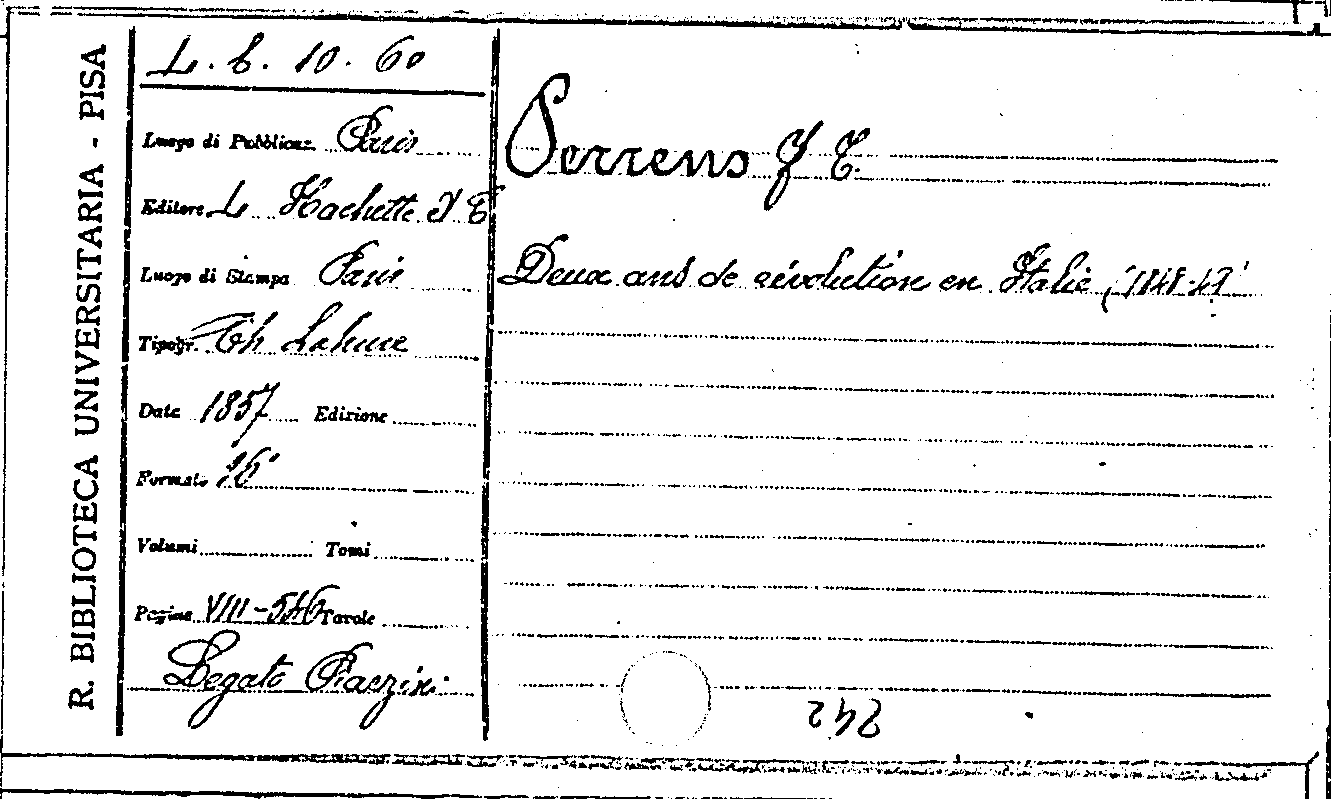 R. BIBLIOTECA UNIVERSITARIA - PISA
L. b. 10. 60
Luogo di Pubblicaz. Paris
Editore L. Hachette et C
Luogo di Stampa Paris
Tipogr. Ch Lahure
Data 1857 Edizione
Formato 16°
Volumi Tomi
Pagine VIII-546 Tavole
Legato
Perrens F T.
Deux ans de révolution en Italie, (1848-49)
242